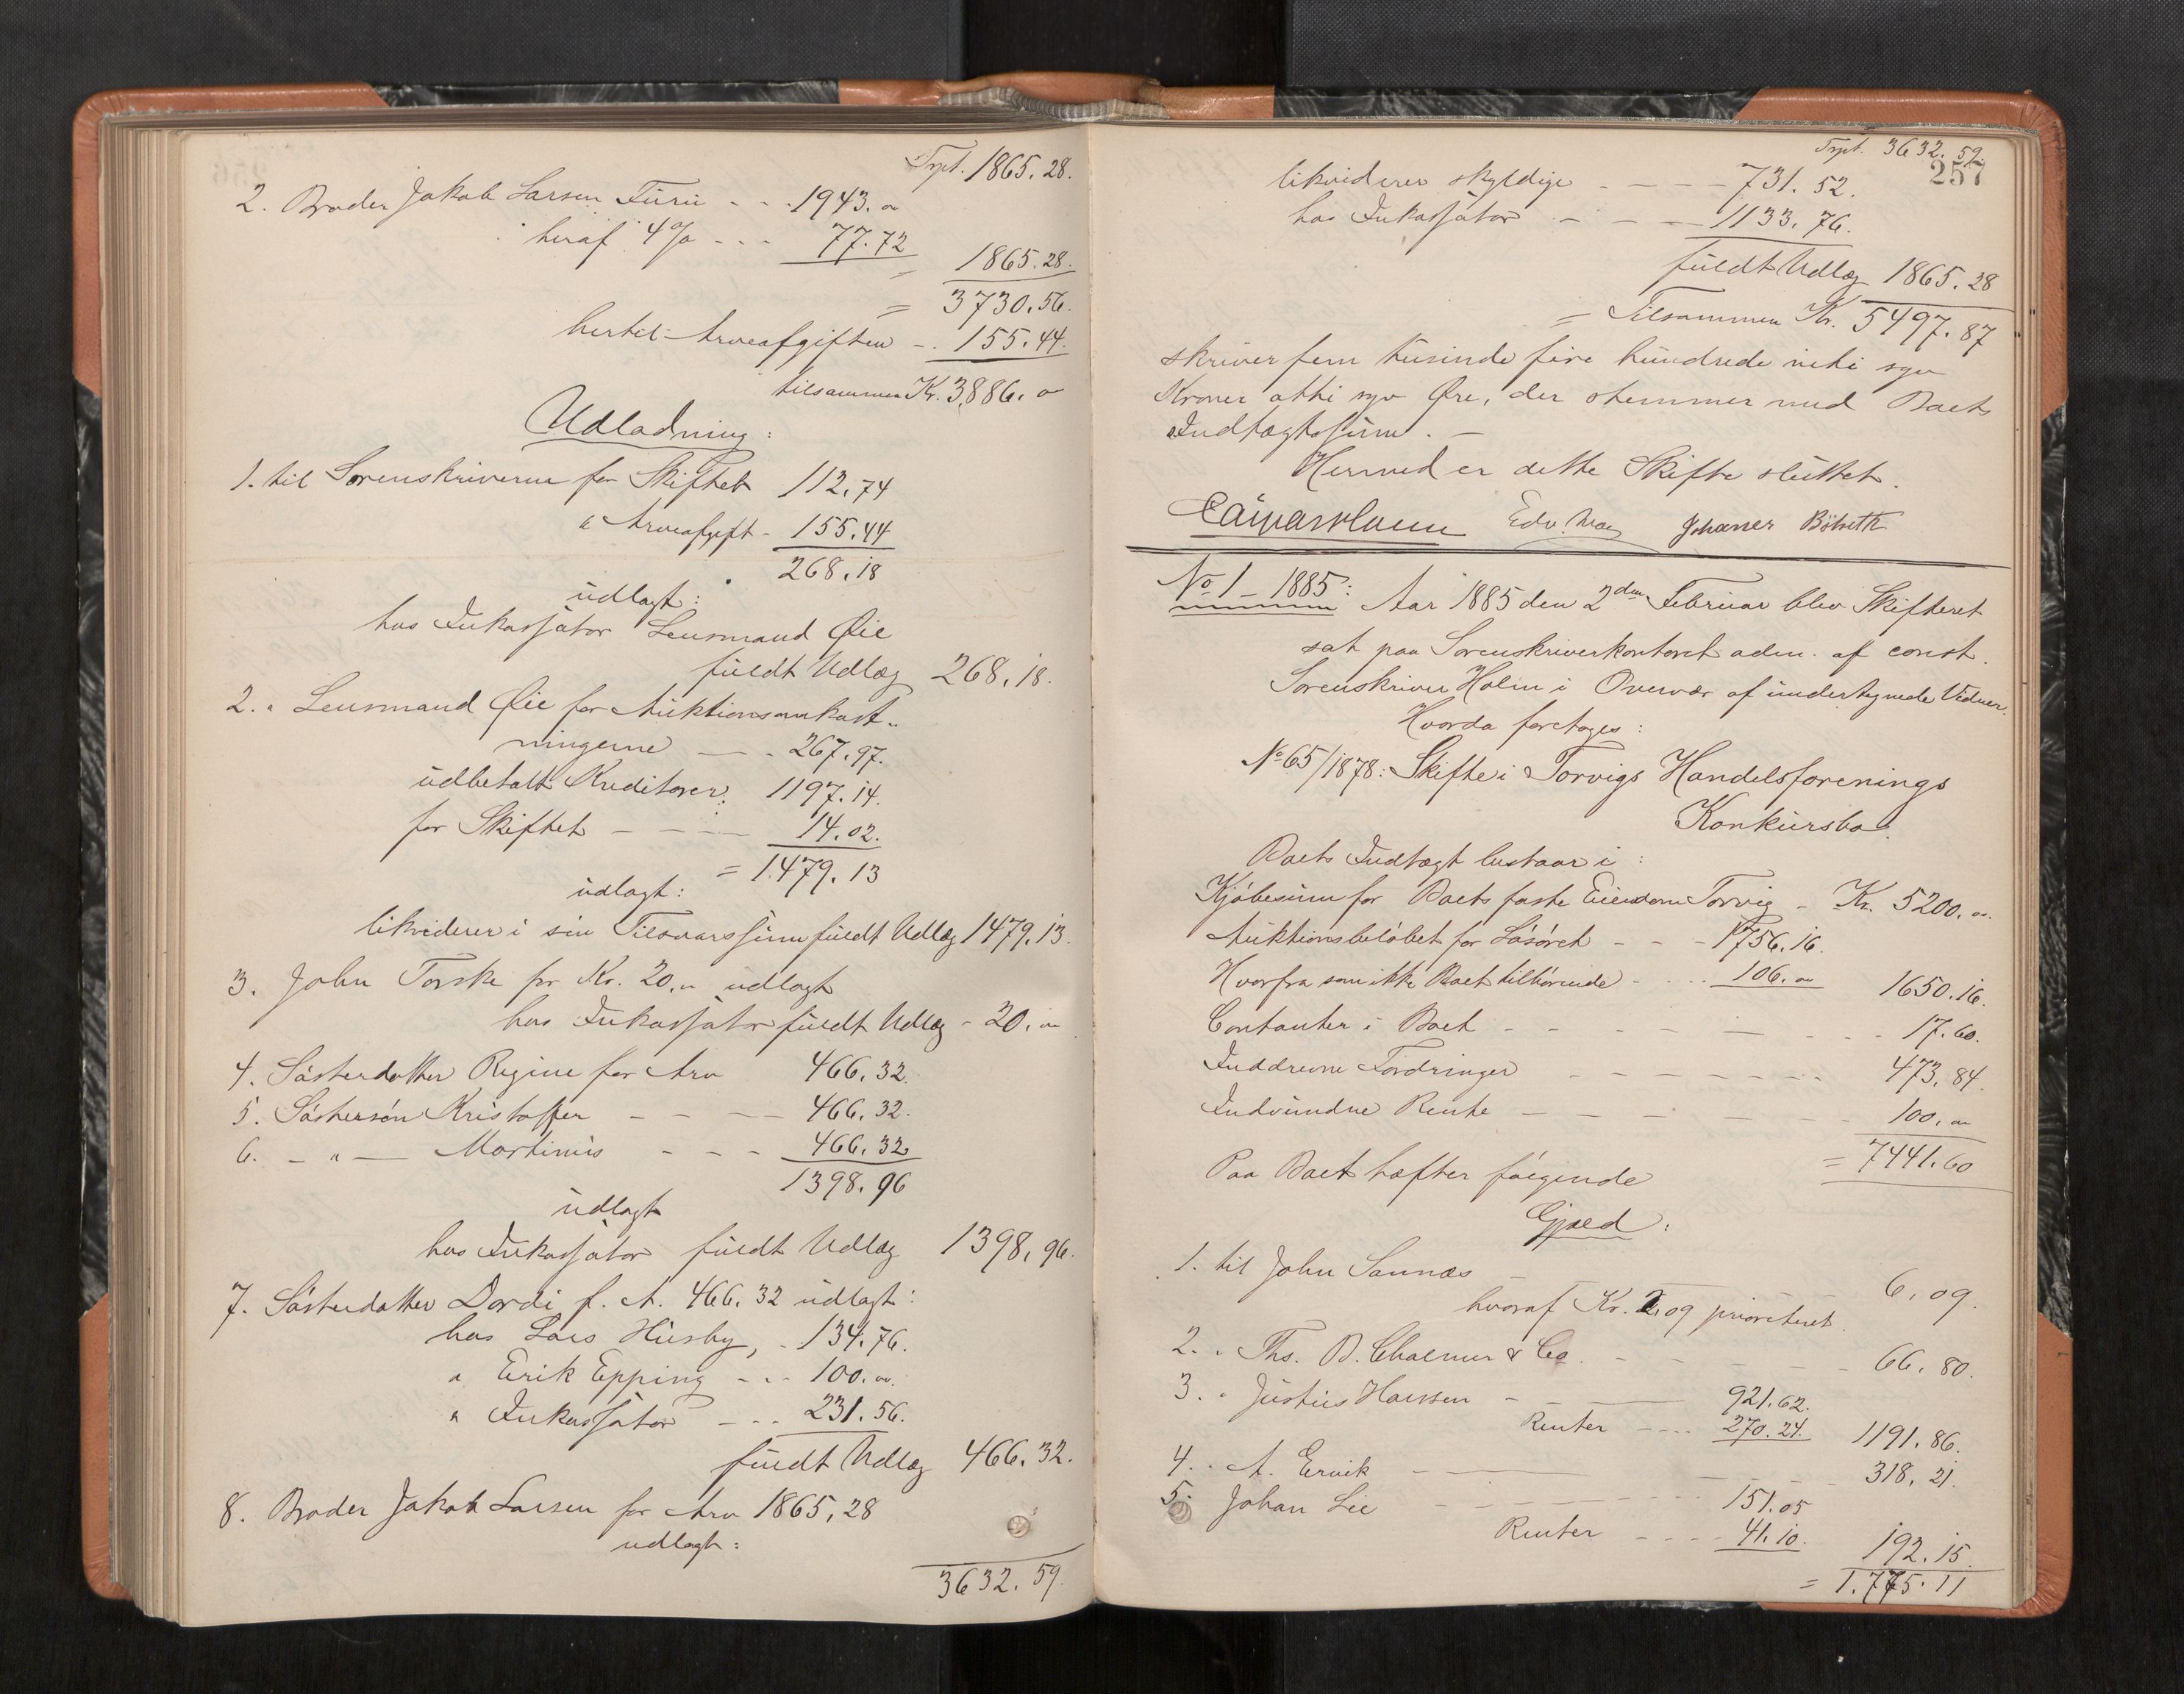 Trpt. 1865.28.
2. Broder Jakob Larsen Furu - - - 1943. "
heraf 4 % - - - 77.72
1865.28.
= 3730.56.
hertil Arveafgiften - . 155.44.
tilsammen Kr. 3886. "
Udlodning:
1. til Sorenskriveren for Skiftet 112.74
" Arveafgift - 155.44
268.18
udlagt:
hos Inkassator Lensmand Øie
fuldt Udlæg 268.18.
2. " Lensmand Øie for Auktionsomkost-
ningerne - - . 267.97.
udbetalt Kreditorer: 1197.14.
for Skiftet - - - 14.02.
= 1479.13
udlagt:
likviderer i sin Tilsvarssum fuldt Udlæg 1479.13.
3. John Torske for Kr. 20. " udlagt
hos Inkassator fuldt Udlæg - 20. "
4. Søsterdatter Regine for Arv 466.32.
5. Søstersøn Kristoffer - - - 466.32.
6. - " - Martinus - - - 466.32
1398.96
udlagt
hos Inkassator fuldt Udlæg 1398.96.
7. Søsterdatter Dordi f. A. 466.32 udlagt:
hos Lars Husby, . 134.76.
" Erik Epping - - - 100. ".
" Inkassator - - - 231.56.
fuldt Udlæg 466.32.
8. Broder Jakob Larsen for Arv 1865,28
udlagt:
3632.59.
Trpt. 3632.59.
257
likviderer skyldige - - - - 731.52.
hos Inkassator - - - 1133.76.
fuldt Udlæg 1865.28
= Tilsammen Kr. 5497.87
skriver fem tusinde fire hundrede niti syv
Kroner otti syv Øre, der stemmer med Boets
Indtægtssum. -
Hermed er dette Skifte sluttet.
Edv. Johannes
No 1 - 1885: Aar 1885 den 2den Februar blev Skifteret
sat paa Sorenskriverkontoret adm. af const.
Sorenskriver Holm i Overvær af undertegnede Vidner.
Hvorda foretages:
No 65/1878: Skifte i Torvigs Handelsforenings
Konkursbo.
Boets Indtægt bestaar i:
Kjøbesum for Boets faste Eiendom Torvig - Kr. 5200. "
Auktionsbeløbet for Løsøret - - - 1756.16.
Hvorfra som ikke Boet tilhørende - . . . 106. " 1650.16.
Contanter i Boet - - - - - - - 17.60.
Inddrevne Fordringer - - - - - - 473.84.
Indvundne Rente - - - - - - 100. "
= 7441.60
Paa Boet hæfter følgende
Gjæld:
1. til John Sannæs - 6.09.
hvoraf Kr. 2.09 prioriteret.
2. " Ths. B. & Co. - - - - - 66.80.
3. " Justus Hanssen - - 921.62.
Renter - - - - 270.24. 1191.86.
4. " A. Ervik - - - - - 318.21.
5. " Johan Lie - - - - - 151.05
Renter - - - - 41.10. 192.15.
= 1.775.11